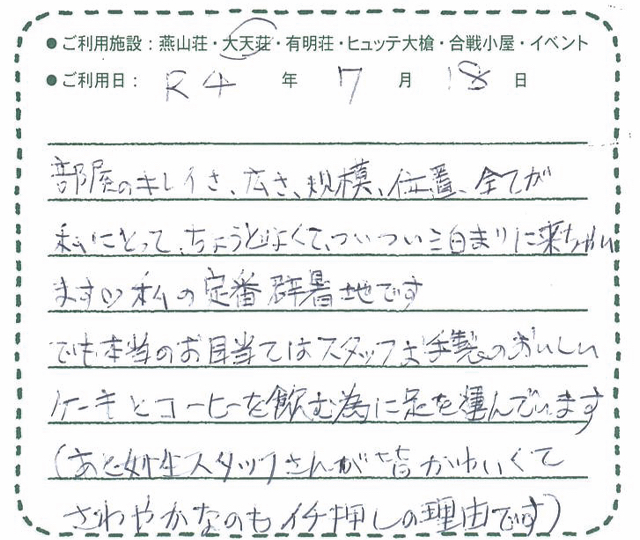 ●ご利用施設：燕山荘・大天荘・有明荘・ヒュッテ大槍・合戦小屋・イベント
●ご利用日： R4 年 7 月 18 日
部屋のキレイさ、広さ、規模、位置、全てが
私にとって、ちょうどよくて、ついつい泊まりに来ちゃい
ます♡私の定番避暑地です
でも本当のお目当てはスタッフお手製のおいしい
ケーキとコーヒーを飲む為に足を運んでいます
(あと女性スタッフさんが皆かわいくて
さわやかなのもイチ押しの理由です)